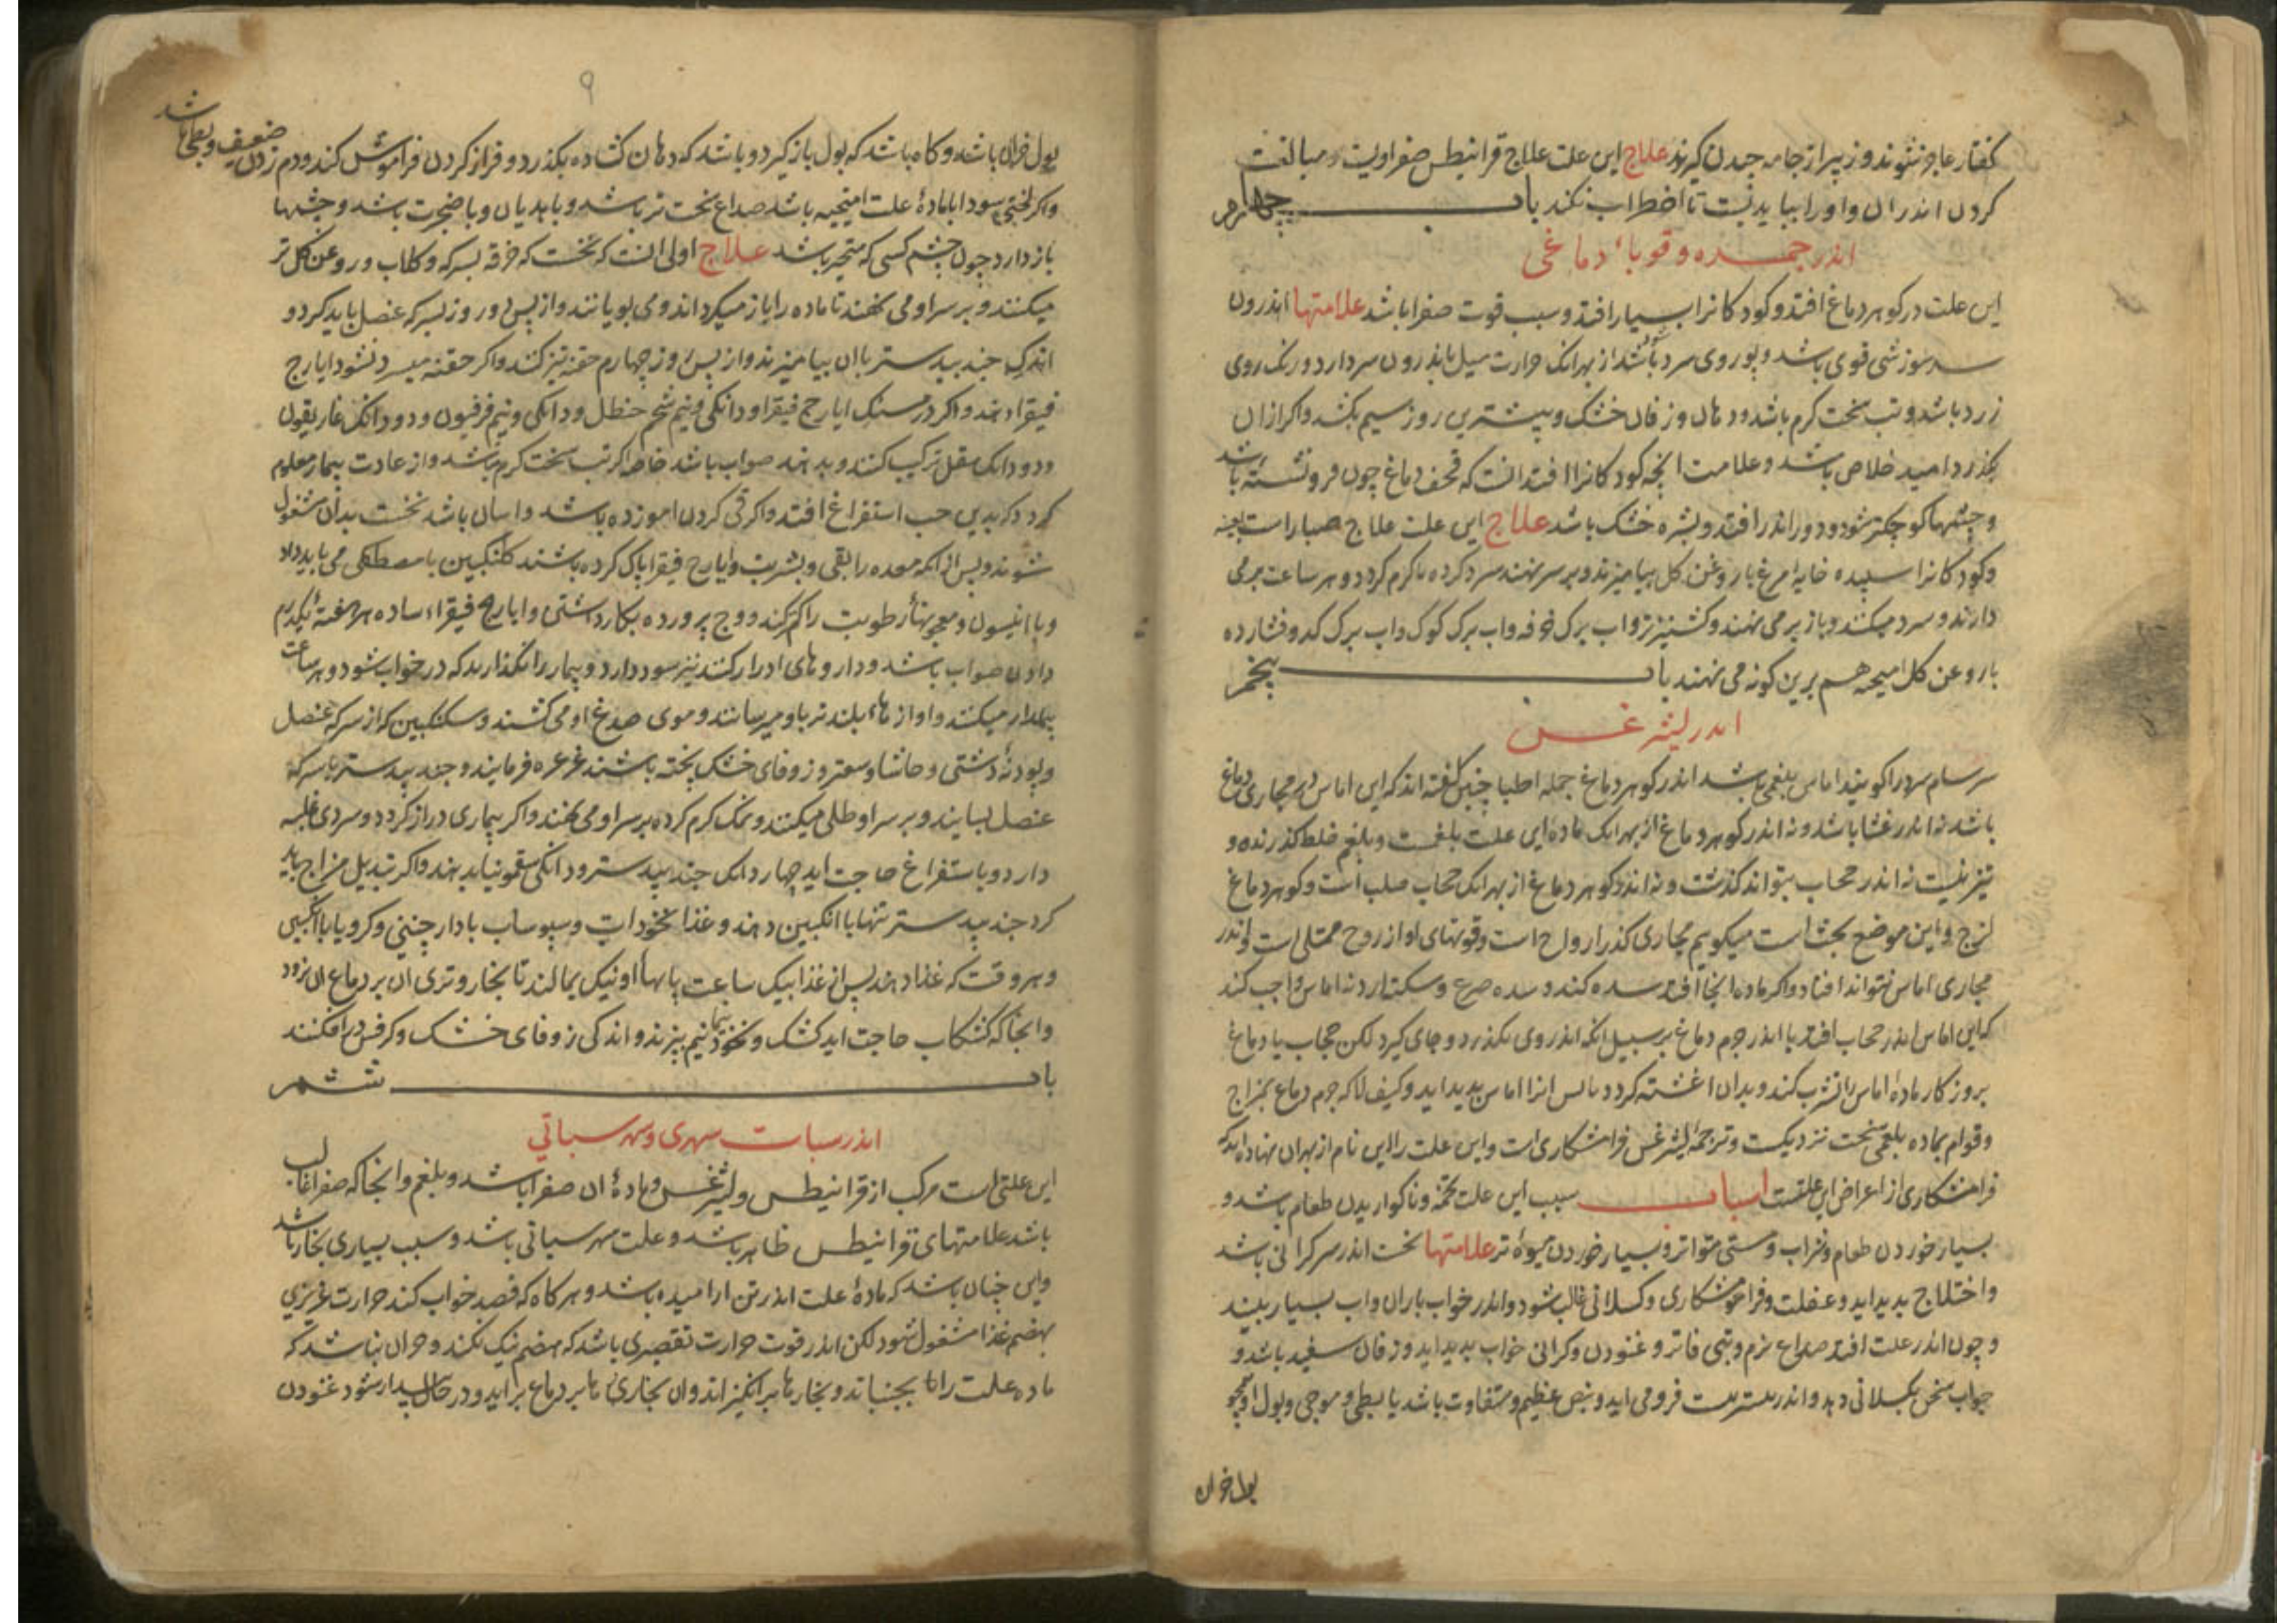 گفتار عاجز شوند و زیبر از جامه چیدن گیرند علاج این علت علاج قرانیطس صفراویست و مبالغت
کردن اندر ان و او را بباید بست تا اضطراب نکند باب چهارم
اندر جمره و قوباء دماغی
این علت در گوهر دماغ افتد و کودکانرا بسیار افتد و سبب قوت صفرا باشد علامتها اندرون
سر سوزشی قوی باشد و روی سرد باشد از بهر انک حرارت میل باندرون سر دارد و رنک روی
زرد باشد و تب سخت کرم باشد و دهان و زفان خشک و بیشتری روز سیم بکشد و اکر از ان
بکذرد امید خلاص باشد و علامت انچه کودکانرا افتد انست که قحف دماغ چون فرو نشسته باشد
و چشمها کوچکتر شود و دور اندر افتد و بشره خشک باشد علاج این علت علاج صباراست بعینه
و کودکانرا سپیده خایه مرغ با روغن کل بیامیزند و بر سر نهند سرد کرده تا کرم کردد و هر ساعت بر می
دارند و سرد میکنند و باز بر می نهند و کشنیز تر و اب برک خرفه و اب برک کوک و اب برک کدو فشارده
با روغن کل امیخته هم برین کونه می نهند باب پنجم
اندر لیثرغس
سرسام سرد را کویند اماس بلغمی باشد اندر کوهر دماغ جمله اطبا چنین کفته اند که این اماس در مجاری دماغ
باشد نه اندر غشا باشد و نه اندر کوهر دماغ از بهر انک ماده این علت بلغمست و بلغم خلط کذرنده و
تیز نیست نه اندر حجاب بتواند کذشت و نه اندر کوهر دماغ از بهر انک حجاب صلب است و کوهر دماغ
لزج و این موضع بحث است میکویم مجاری کذر ارواح است و قوتهای او از روح ممتلی است و اندر
مجاری اماس نتواند افتاد و اکر ماده انجا افتد سده کند و سده صرع و سکته ارد نه اماس واجب کند
که این اماس اندر حجاب افتد یا اندر جرم دماغ بر سبیل انکه اندر وی بکذرد و جای کیرد لکن حجاب یا دماغ
بروزکار ماده اماس را تشرب کند و بدان اغشته کردد پس انرا اماس پدید اید و کیف لا که جرم دماغ بمزاج
و قوام بماده بلغمی سخت نزدیکست و ترجمه لیثرغس فرامشکاری است و این علت را این نام از بهر ان نهاده اند که
فرامشکاری از اعراض این علتست اسباب سبب این علت تخمه و ناکواریدن طعام باشد و
بسیار خوردن طعام و شراب و مستی متواتر و بسیار خوردن میوه تر علامتها نخست اندر سر کرانی باشد
و اختلاج پدید اید و غفلت و فراموشکاری و کسلانی غالب شود و اندر خواب باران و اب بسیار بیند
و چون اندر علت افتد صداع نرم و تبی فاتر و غنودن و کرانی خواب پدید اید و زفان سفید باشد و
جواب سخن بکسلانی دهد و اندر فرو می اید و نبض عظیم و متفاوت باشد یا بطی و موجی و بول او چو
بول خران
۹
بول خران باشد و کاه باشد که بول باز کیرد و باشد که دهان کشاده بکذرد و فراز کردن فراموش کند و دم زدن ضعیف و بطی باشد
و اکر لختی سودا با ماده علت امیخته باشد صداع سخت تر باشد و با هذیان و با ضجرت باشد و چشمها
باز دارد چون چشم کسی که متحیر باشد علاج اولی انست که نخست که خرقه بسرکه و کلاب و روغن کل تر
میکنند و بر سر او می نهند تا ماده را باز میکرداند و می بویانند و از پس دو روز بسرکه عنصل باید کرد و
اندک جند بیدستر با ان بیامیزند و از پس روز چهارم حقنه تیز کنند و اکر حقنه میسر نشود ایارج
فیقرا دهند و اکر درمسنک ایارج فیقرا و دانکی و نیم شحم حنظل و دانکی و نیم فرفیون و دو دانک غاریقون
و دو دانک مقل ترکیب کنند و بدهند صواب باشد خاصه اکر تب سخت کرم نباشد و از عادت بیمار معلوم
کردد که بدین حب استفراغ افتد و اکر قی کردن اموزده باشد و اسان باشد نخست بدان مشغول
شوند و پس از انکه معده را بقی و بشربت و ایارج فیقرا پاک کرده باشند کلنکبین با مصطکی می باید داد
و با انیسون و معجونها رطوبت را کم کند و وج پرورده بکار داشتن و ایارج فیقراء ساده هر هفته یکدرم
دادن صواب باشد و داروهای ادرار کننده نیز سود دارد و بیمار را نکذارند که در خواب شود و هر ساعت
بیدار میکنند و اوازهاء بلند تر باو میرسانند و موی صدغ او می کشند و سکنکبین که از سرکه عنصل
و پودنه دشتی و حاشا و سعتر و زوفای خشک پخته باشند غرغره فرمایند و جند بیدستر با سرکه
عنصل بسایند و بر سر او طلی میکنند و نمک کرم کرده بر سر او می نهند و اکر بیماری دراز کردد و سردی غلبه
دارد و باستفراغ حاجت اید چهار دانک جند بیدستر و دانکی سقمونیا بدهند و اکر تبدیل مزاج باید
کرد جند بیدستر تنها با انکبین دهند و غذا نخوداب و سبوساب با دارچینی و کرویا با انکبین
و هر وقت که غذا دهند پس از غذا بیک ساعت پایهاء او نیک بمالند تا بخار و تری ان بر دماغ ان نرود
و انجا که کشکاب حاجت اید کشک و نخود نیم بپزند و اندکی زوفای خشک و کرفس درافکنند
باب ششم
اندر سبات سهری و سهر سباتی
این علتی است مرکب از قرانیطس و لیثرغس و ماده ان صفرا باشد و بلغم و انجا که صفرا غالب
باشد علامتهای قرانیطس ظاهر باشد و علت سهر سباتی باشد و سبب بسیاری بخار باشد
و این چنان باشد که ماده علت اندر تن ارامیده باشد و هرکاه که قصد خواب کند حرارت غریزی
بهضم غذا مشغول شود لکن اندر قوت حرارت تقصیری باشد که هضم نیک نکند و حران نباشد که
ماده علت را بجنباند و بخارها برانکیزاند و ان بخارها بر دماغ براید و در حال بیدار شود غنودن